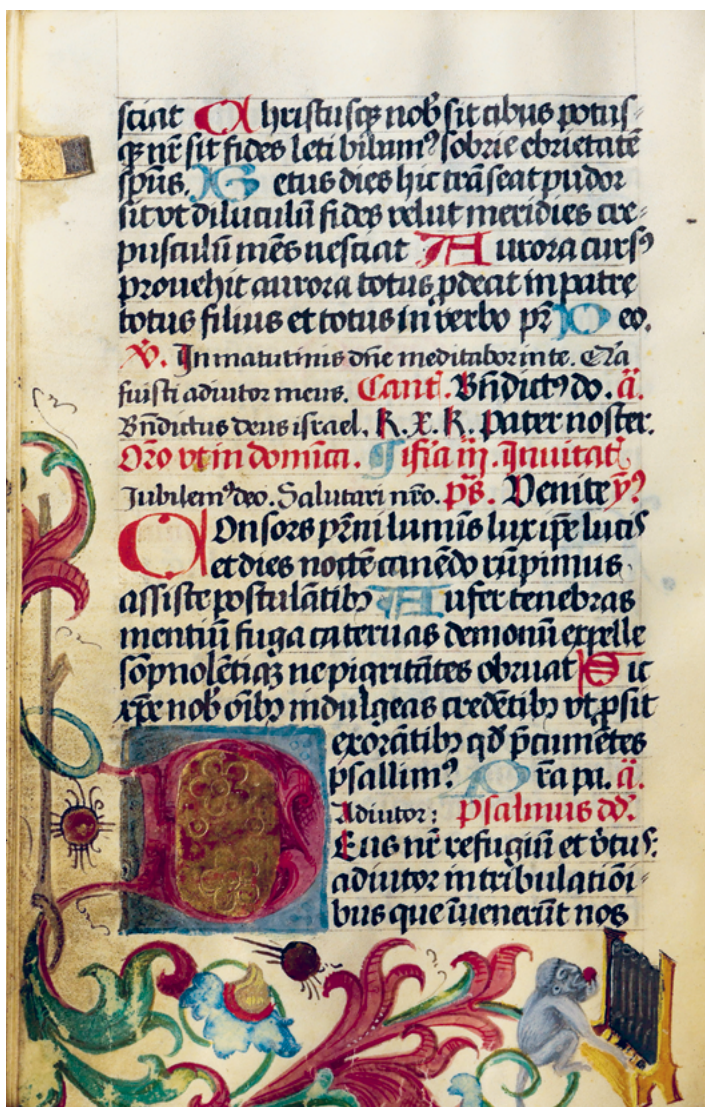 sciat Christusq; nob̄ sit cibus potus⸗
q; nr̄ sit fides leti bibamꝰ sobrie ebrietatē
sp̄us. Letus dies hic trāseat pudor
sit vt diluculū fides velut meridies cre⸗
pusculū mēs nesciat Aurora cursꝰ
prouehit aurora totus ꝓdeat in patre
totus filius et totus in verbo pr̄ Deo.
℣. In matutinis dn̄e meditabor in te. Q̄ra
fuisti adiutor meus. Cant̄. Bn̄dictꝰ do. ā.
Bn̄dictus deus israel, k. x. k. Pater noster.
Oro vt in domīca. ¶ if'ia iij. Inuitat̄
Jubilemꝰ deo. Salutari nr̄o. ps̄. Venite yꝰ
COnsors pr̄ni lumīs lux ip̄e lucis
et dies noctē canēdo rūpimus
assiste postulātibꝫ Aufer tenebras
mentiū fuga cateruas demonū expelle
sōpnolētiaꝫ ne pigritātes obruat Sic
xp̄e nob̄ oībꝫ indulgeas credētibꝫ vt ꝓsit
exorātibꝫ qd̄ p̄cinuētes
psallimꝰ Pr̄a pa. ā.
Adiutor: Psalmus dd̄.
DEus nr̄ refugiū et v̄tus:
adiutor in tribulatiōi⸗
bus que īuenerūt nos